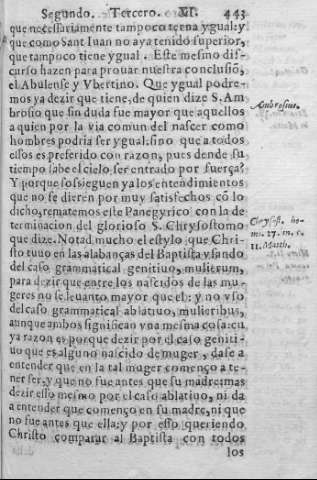 Segundo. Tercero. XI. 443
que necessariamente tampoco terna ygual: y
que como Sant Iuan no aya tenido superior,
que tampoco tiene ygual. Este mesmo dis-
curso hazen para prouar nuestra conclusiõ,
el Abulense y Vbertino. Que ygual podre-
mos ya dezir que tiene, de quien dize S. Am
brosio que sin duda fue mayor que aquellos
a quien por la via comun del nascer como
hombres podria ser ygual: sino que a todos
essos es preferido con razon, pues dende su
tiempo sabe el cielo ser entrado por fuerça?
Y porque sossieguen ya los entendimientos
que no se dieren por muy satisfechos cõ lo
dicho, rematemos este Panegyrico con la de
terminacion del glorioso S. Chrysostomo
que dize. Notad mucho el estylo que Chri-
sto tuuo en las alabanças del Baptista vsando
del caso grammatical genitiuo, mulierum,
para dezir que entre los nascidos de las mu-
geres no se leuanto mayor que el: y no vso
del caso grammatical ablatiuo, mulieribus,
aunque ambos significan vna mesma cosa: cu
ya razon es porque dezir por el caso geniti-
uo que es alguno nascido de muger, dase a
entender que en la tal muger començo a te-
ner ser, y que no fue antes que su madre: mas
dezir esso mesmo por el caso ablatiuo, ni da
a entender que començo en su madre, ni que
no fue antes que ella: y por esso queriendo
Christo comparar al Baptista con todos
los
Ambrosius.
Chrysost. ho-
mi. 27. in. c.
11. Matth.